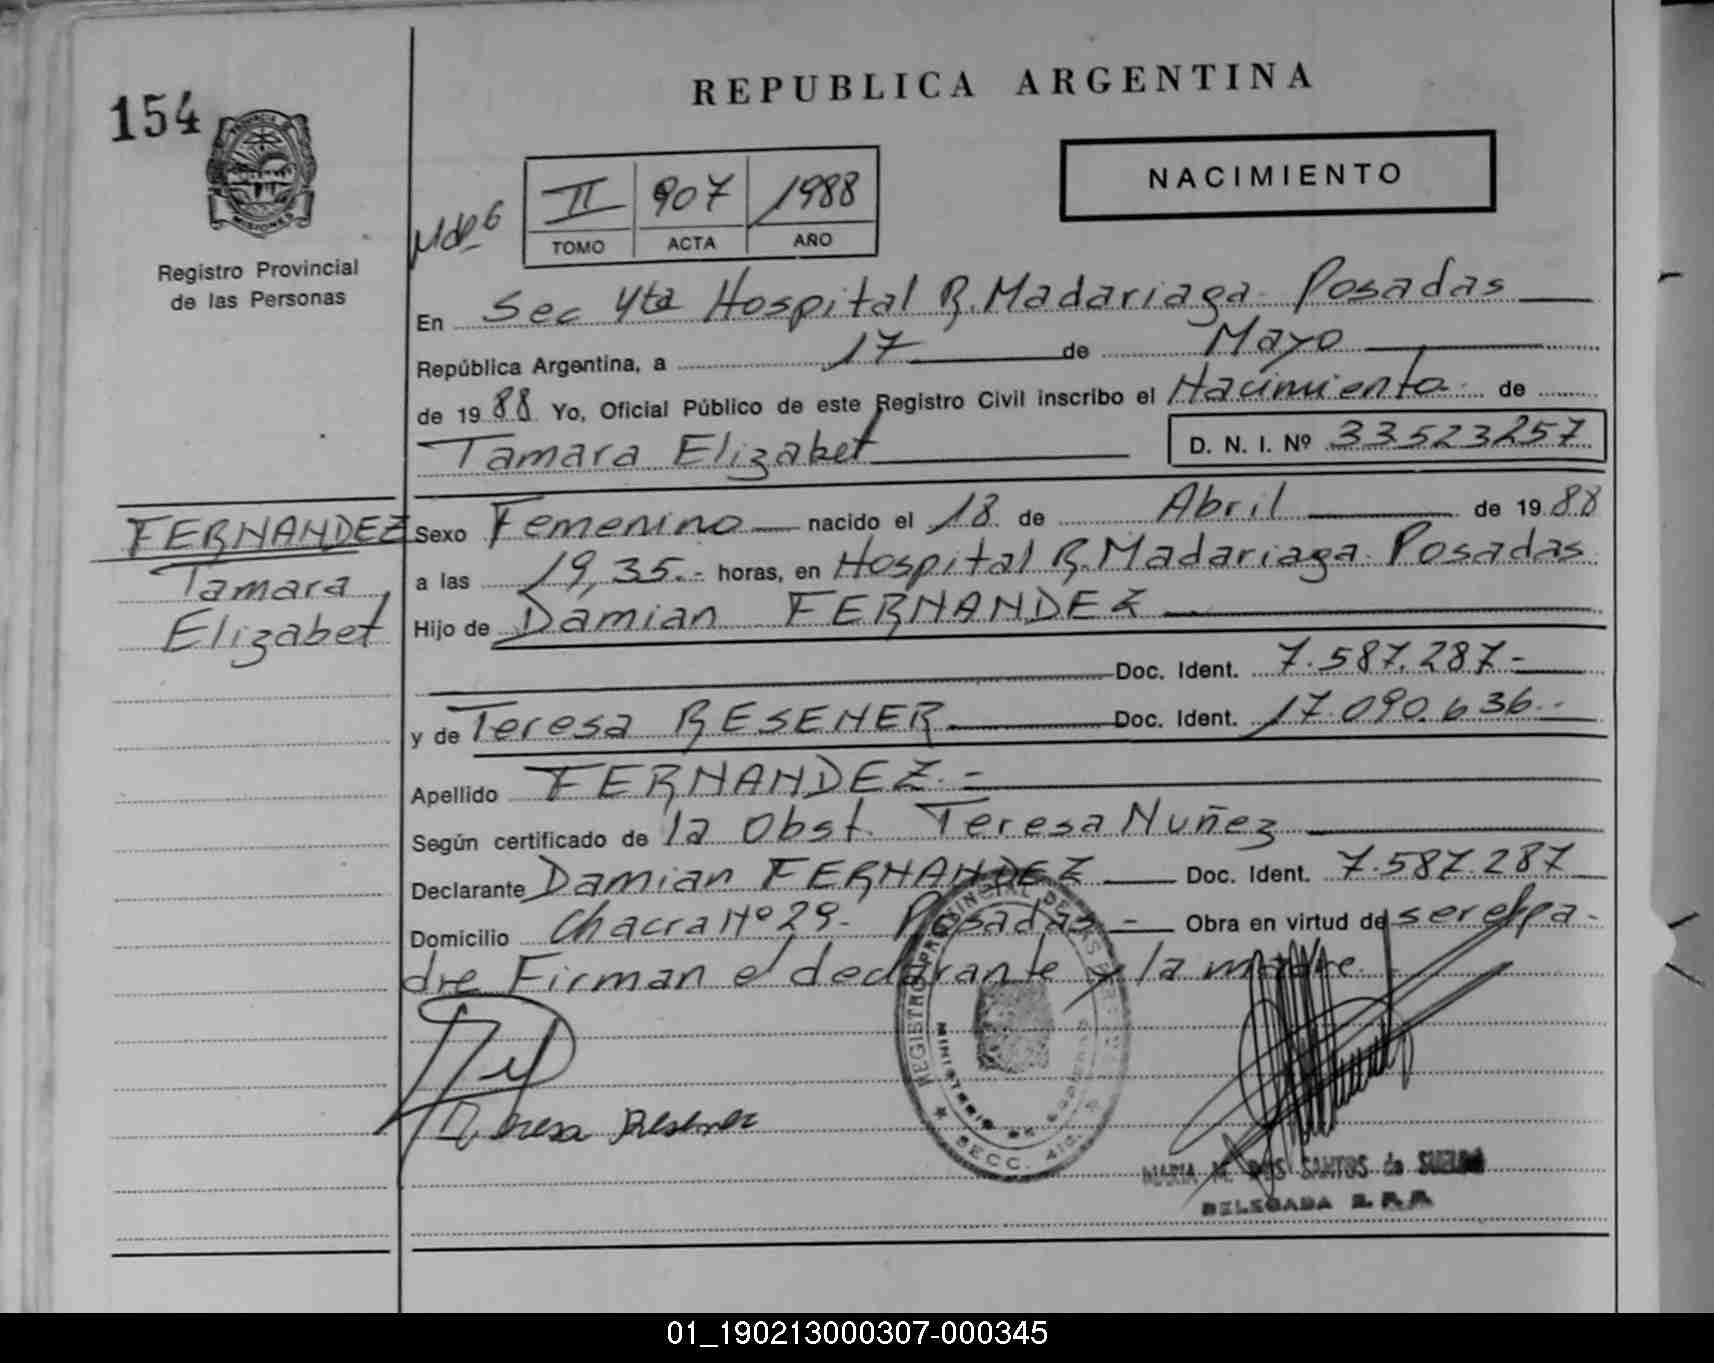 REPUBLICA ARGENTINA
154
PROVINCIA DE
MISIONES
NACIMIENTO
II 907 1988
TOMO ACTA AÑO
Registro Provincial
de las Personas
En Sec 4ta Hospital R. Madariaga - Posadas
República Argentina, a 17 de Mayo
de 1988 Yo, Oficial Público de este Registro Civil inscribo el Nacimiento de
Tamara Elizabet D. N. I. Nº 33523257
FERNANDEZ
Tamara
Elizabet
Sexo Femenino nacido el 18 de Abril de 1988
a las 19,35.- horas, en Hospital R. Madariaga. Posadas
Hijo de Damian FERNANDEZ
Doc. Ident. 7.587.287-
y de Teresa RESENER Doc. Ident. 17.090.636.-
Apellido FERNANDEZ.-
Según certificado de la Obst. Teresa Nuñez
Declarante Damian FERNANDEZ Doc. Ident. 7.587.287
Domicilio Chacra Nº 29- Posadas - Obra en virtud de ser el pa-
dre Firman el declarante y la madre.
Teresa Resener
REGISTRO PROVINCIAL DE LAS PER
MINISTERIO DE GOBIERNO
SECC. 4ta.
MARIA M. DOS SANTOS de
DELEGADA R. P. P.
01_190213000307-000345